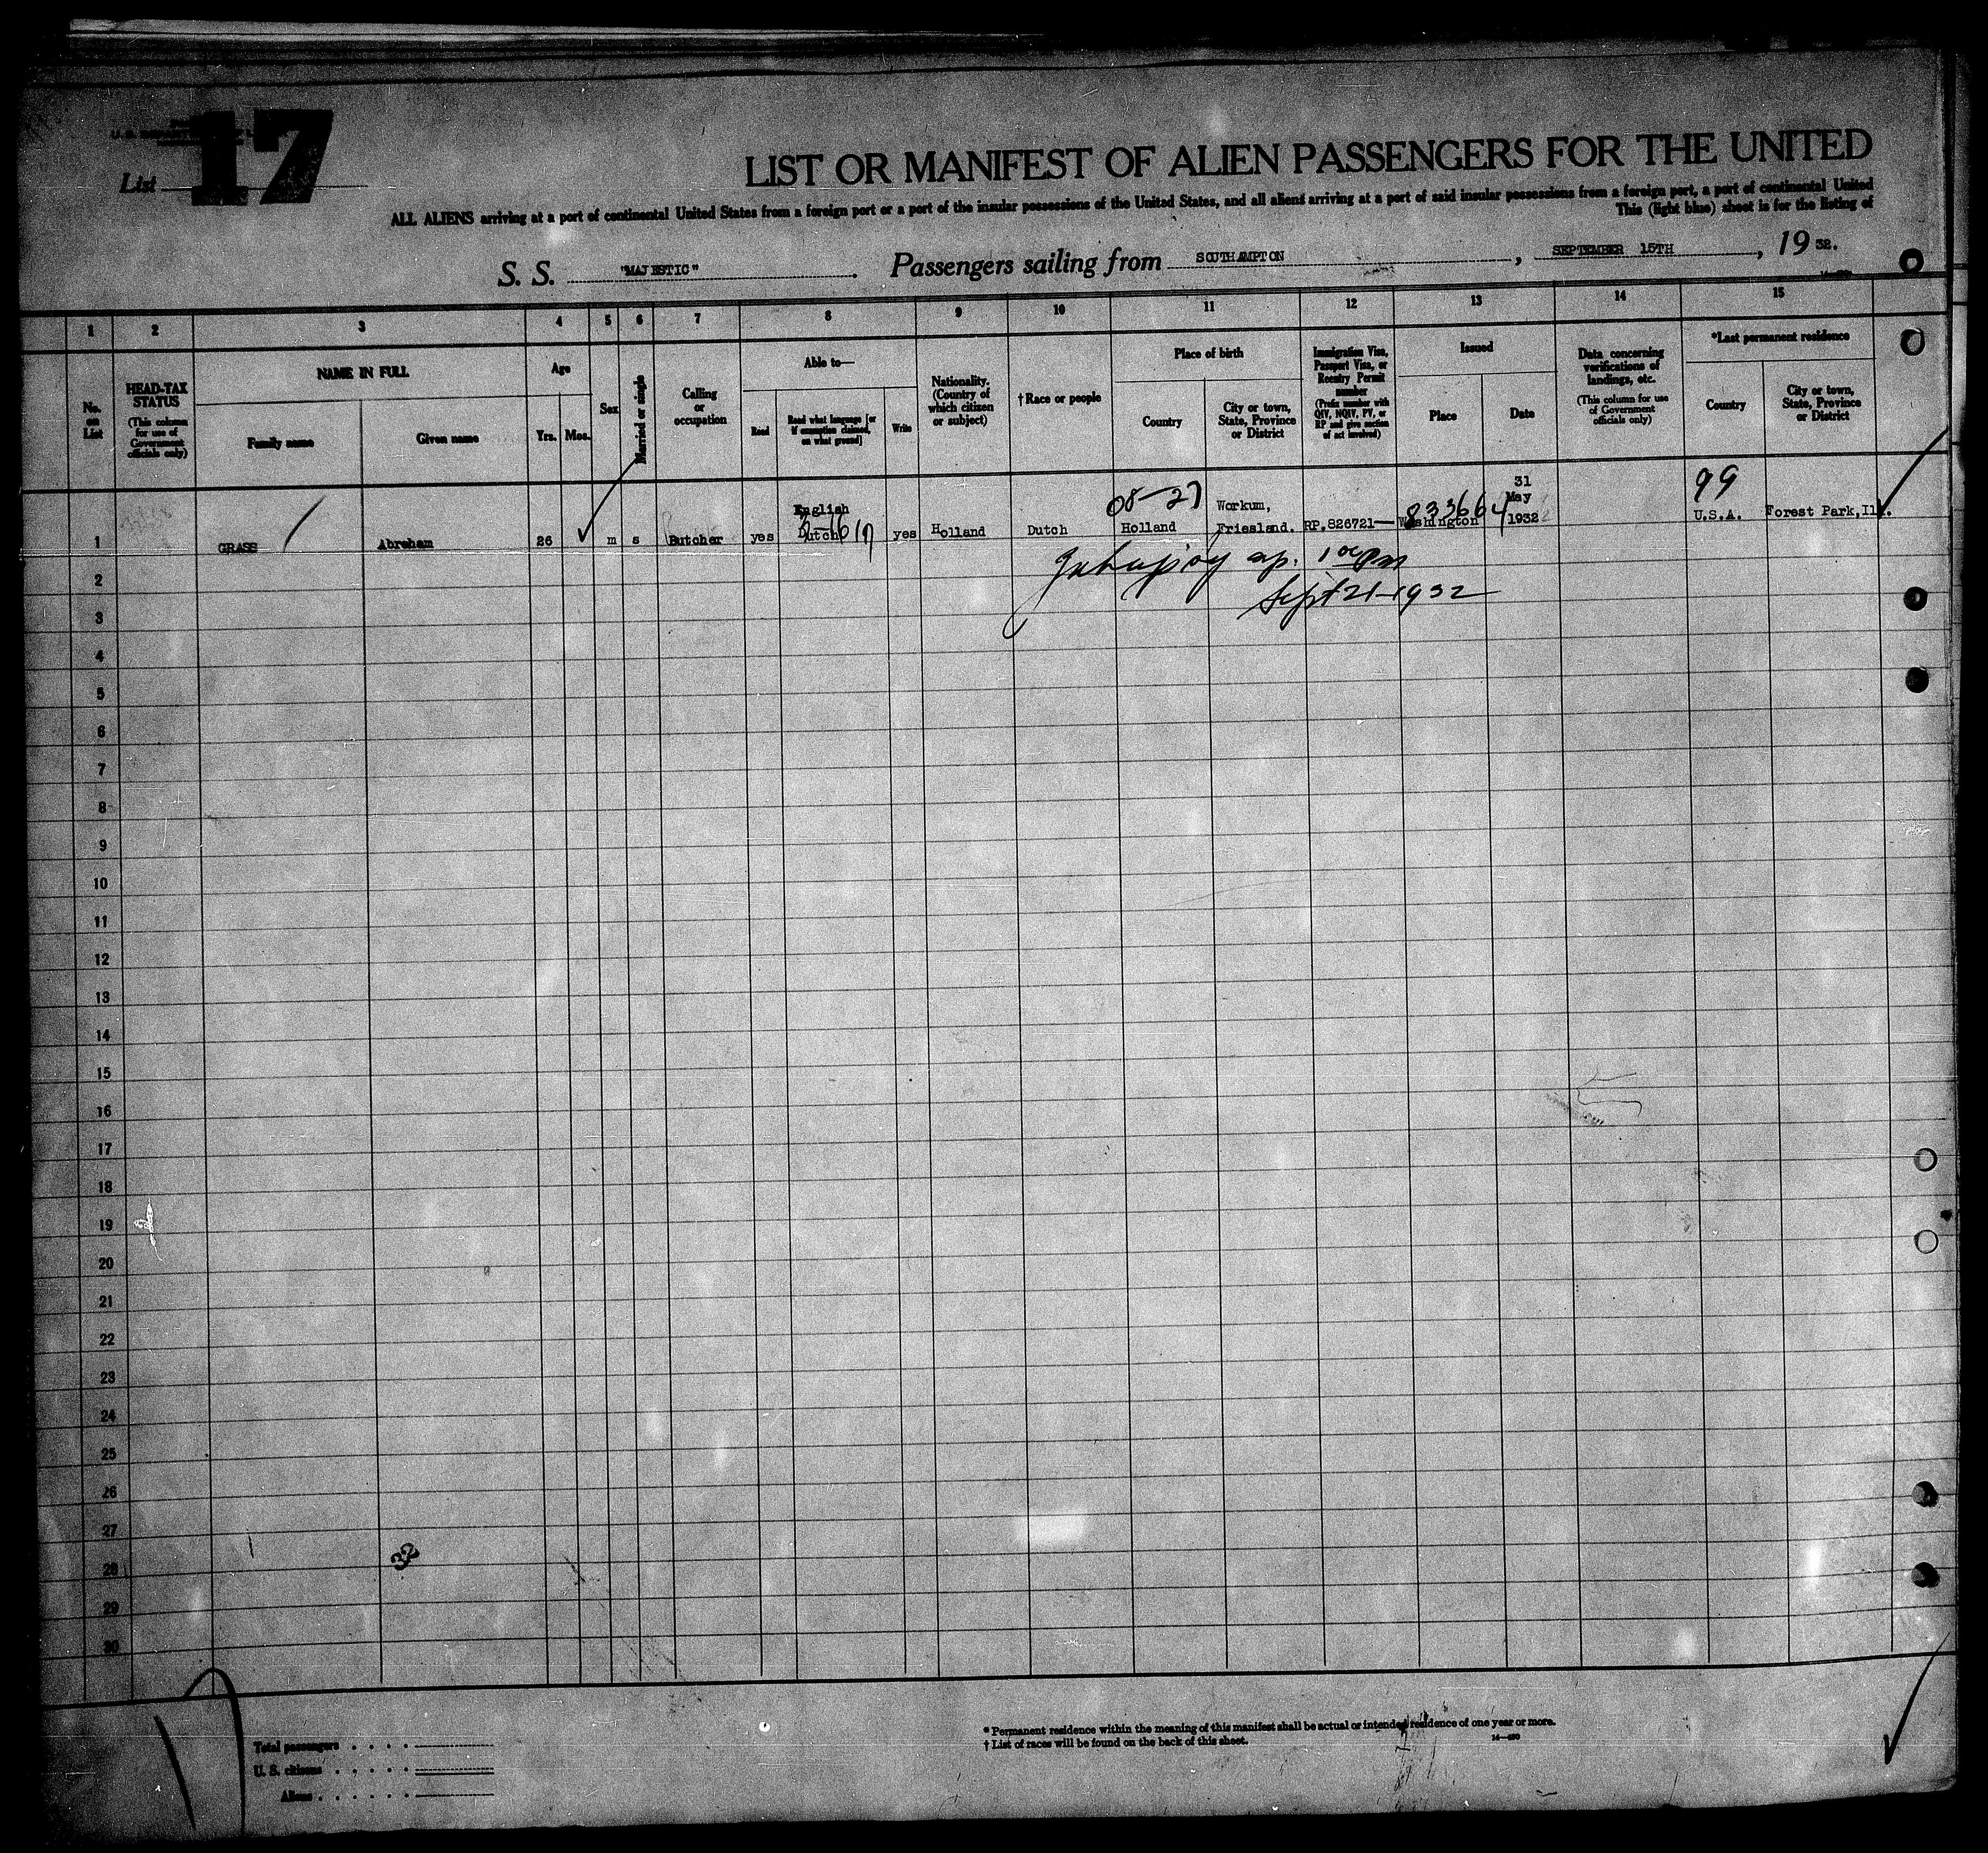 17
List
LIST OR MANIFEST OF ALIEN PASSENGERS FOR THE UNITED
ALL ALIENS arriving at a port of continental United States from a foreign port or a port of the insular possessions of the United States, and all aliens arriving at a port of said insular possessions from a foreign port, a port of continental United
This (light blue) sheet is for the listing of
S. S. "MAJESTIC". Passengers sailing from SOUTHAMPTON, SEPTEMBER 15TH, 1932.
1 2 3 4 5 6 7 8 9 10 11 12 13 14 15
No. on List
HEAD-TAX STATUS (This column for use of Government officials only)
NAME IN FULL
Family name
Given name
Age
Yrs. Mos.
Sex
Married or single
Calling or occupation
Able to—
Read
Read what language [or if exemption claimed, on what ground]
Write
Nationality. (Country of which citizen or subject)
† Race or people
Place of birth
Country
City or town, State, Province or District
Immigration Visa, Passport Visa, or Reentry Permit number (Prefix number with QIV, NQIV, PV, or RP and give section of act involved)
Issued
Place
Date
Data concerning verifications of landings, etc. (This column for use of Government officials only)
*Last permanent residence
Country
City or town, State, Province or District
1 GRASE Abraham 26 m s Butcher yes English Dutch yes Holland Dutch Holland Workum, Friesland. RP.826721— Washington 31 May 1932 U.S.A. Forest Park, Ill.
833664
99
Sept 21-1932
2
3
4
5
6
7
8
9
10
11
12
13
14
15
16
17
18
19
20
21
22
23
24
25
26
27
28
29
30
32
Total passengers
U. S. citizens
Aliens
* Permanent residence within the meaning of this manifest shall be actual or intended residence of one year or more.
† List of races will be found on the back of this sheet.
14—490